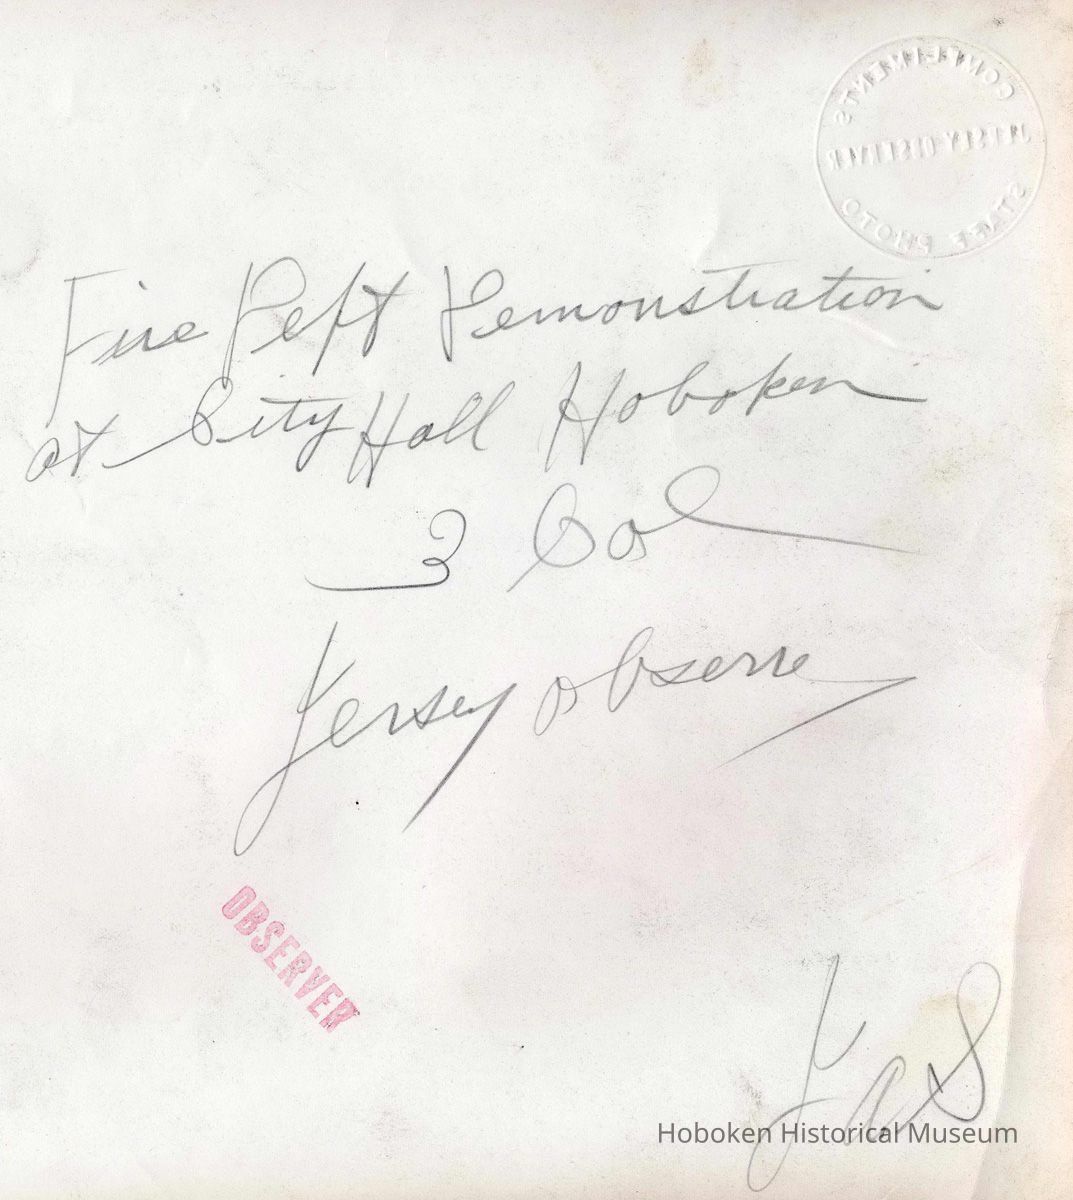 COMPLIMENTS
JERSEY OBSERVER
STAFF PHOTO
Fire Dept Demonstration
at City Hall Hoboken
3 Col
Jersey Observer
OBSERVER
Jas
Hoboken Historical Museum